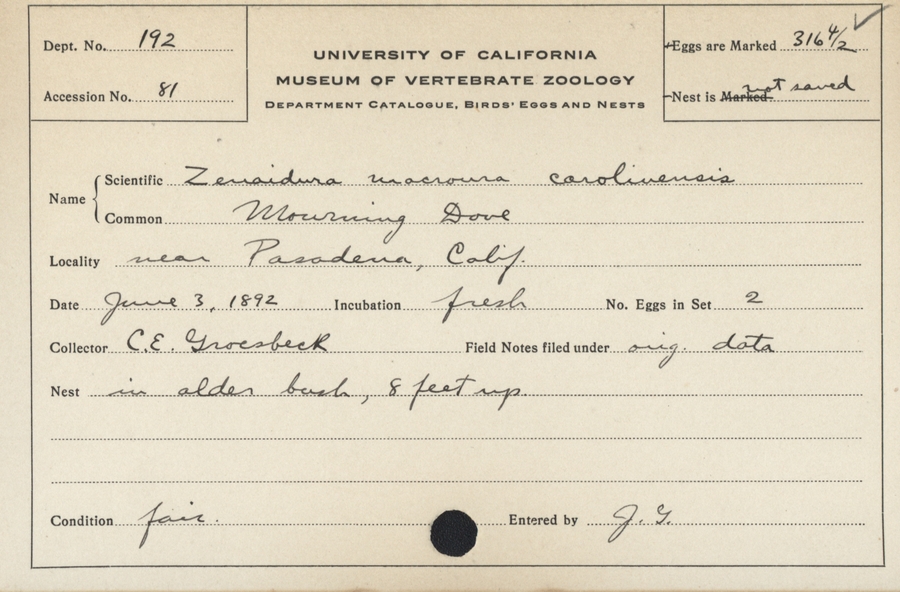 Dept. No. 192
Accession No. 81
UNIVERSITY OF CALIFORNIA
MUSEUM OF VERTEBRATE ZOOLOGY
DEPARTMENT CATALOGUE, BIRDS' EGGS AND NESTS
Eggs are Marked 316 4/2
Nest is Marked not saved
Name
Scientific Zenaidura macroura carolinensis
Common Mourning Dove
Locality near Pasadena, Calif.
Date June 3, 1892 Incubation fresh No. Eggs in Set 2
Collector C.E. Groesbeck Field Notes filed under orig. data
Nest in alder bush, 8 feet up.
Condition fair. Entered by J. G.